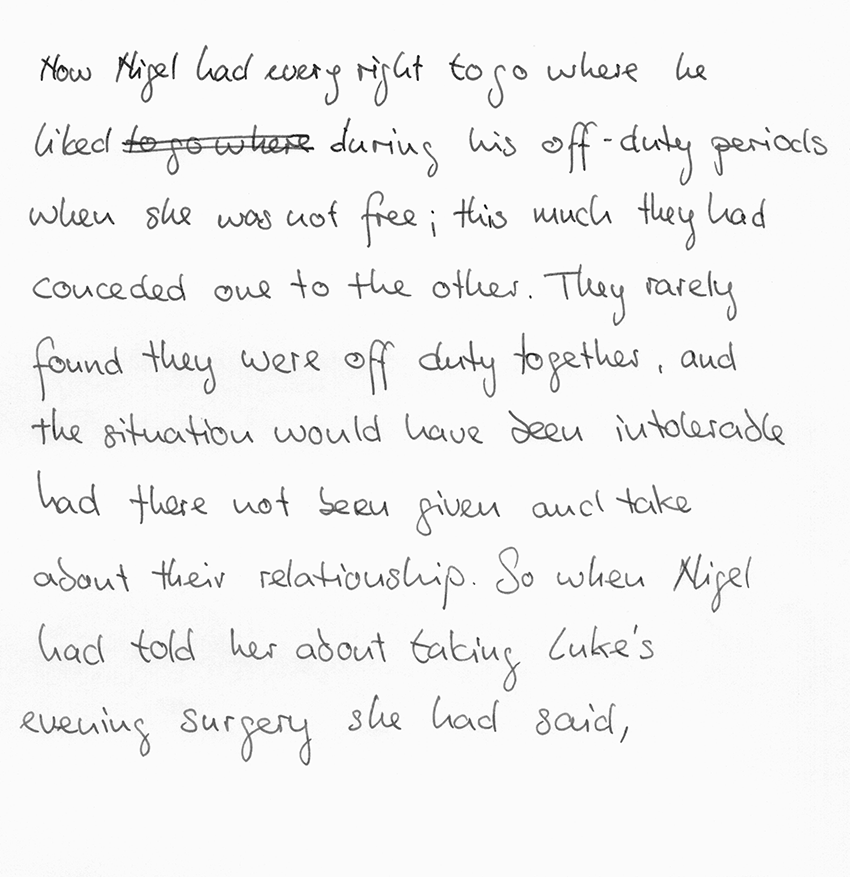 Now Nigel had every right to go where he
liked ~~to go where~~ during his off-duty periods
when she was not free; this much they had
conceded one to the other. They rarely
found they were off duty together, and
the situation would have been intolerable
had there not been given and take
about their relationship. So when Nigel
had told her about taking Luke's
evening surgery she had said,